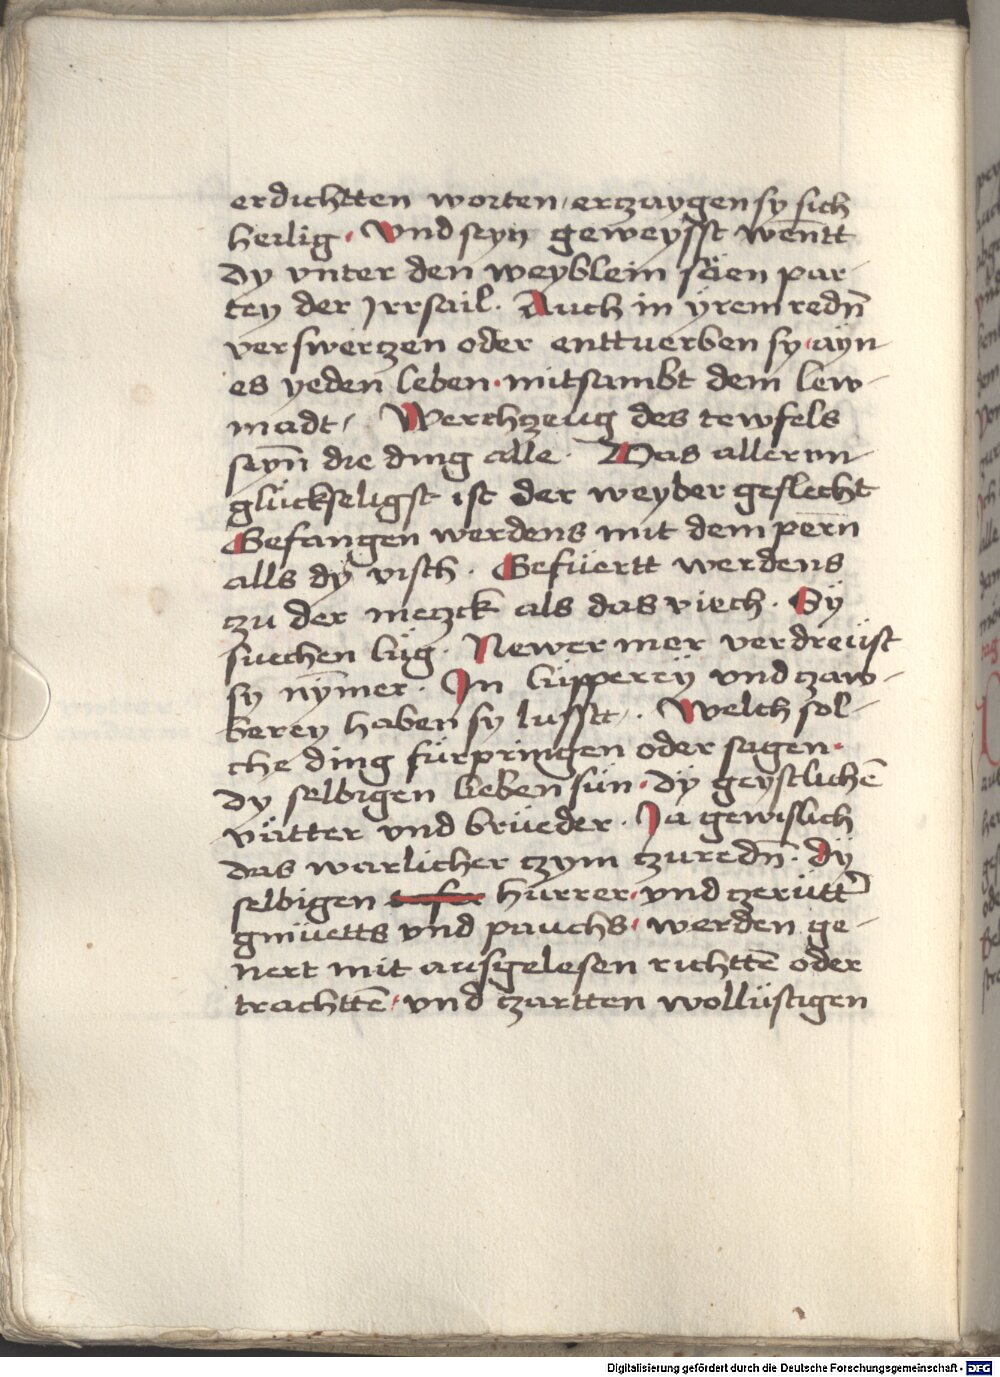 erdichtten worten, erczaygen sy sich
heilig. Vnd seyn geweysst wēntt
dy vnter den weyblein säen par-
tey der Jrrsail. Auch in ÿrem redn̄
verswerczen oder enttuerben sy ayn
es yeden leben. mitsambt dem lew-
madt, Werchczeug des tewfels
seyn̄ die ding alle. Das allerun-
glückseligst ist der weyber geslecht
Gefangen werdens mit dem pern̄
alls dÿ visch. Gefüertt werdens
zu der meczck als das viech. Sÿ
suechen lüg. Newer mer verdreüst
sy nȳmer. In lüpperey vnd zaw-
berey haben sy lusstt. Welch sol-
che ding fürpringen oder sagen.
dy selbigen lieben sün. dÿ geystlichē
vätter vnd brüeder. Ja gewislich
das warlicher czym czuredn̄. dÿ
selbigen hurrer. vnd zerütt
gmüetts vnd pauchs. werden ge-
nert mit ausgelesen richttē oder
trachttē. vnd czartten wollüstigen
Digitalisierung gefördert durch die Deutsche Forschungsgemeinschaft - DFG